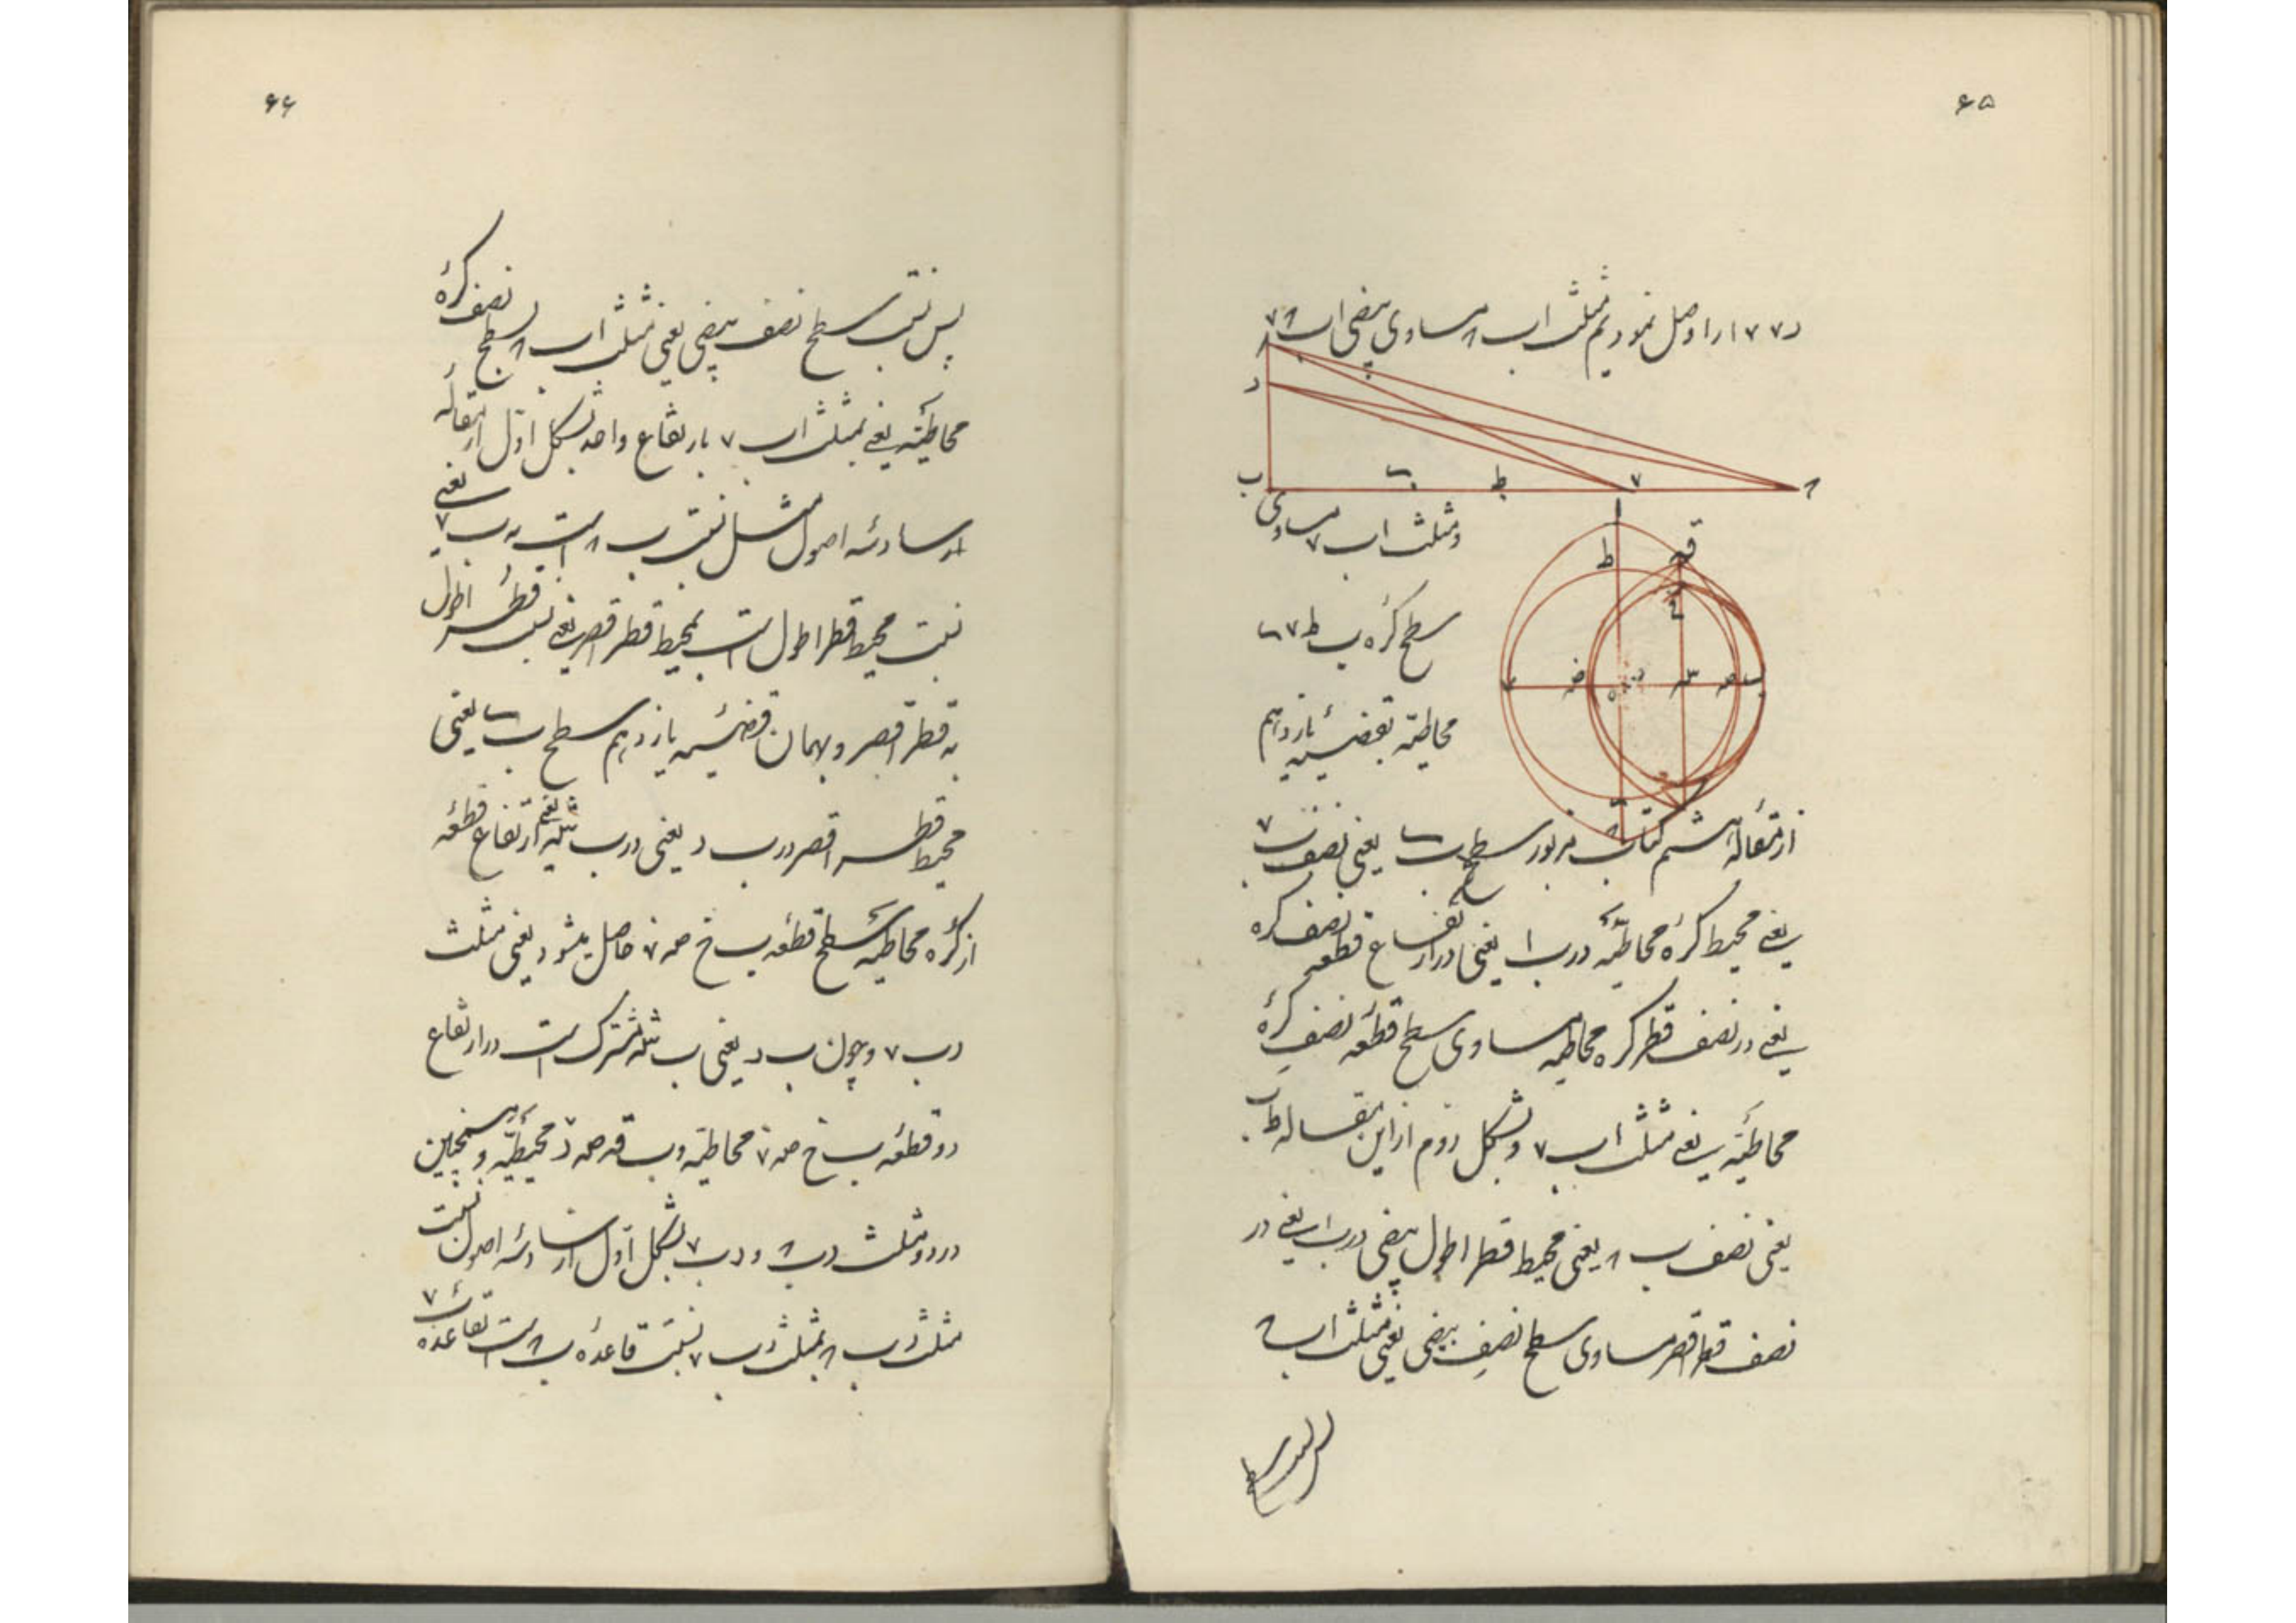 ۶۵
د ۷ ۷ ا را وصل نمودیم مثلث اب ۸ مساوی بیضی اب ۸ ۷
۸
د
ب ط ۷ ۸
و مثلث اب ۷ مساوی
ا
ط
سطح کره ب ط ۷
۷ ب
محاطیه بقضیه یازدهم
از مقاله ششم کتاب مزبور سطح ب یعنی نصف ب ۷
یعنی محیط کره محاطیه در ب ا یعنی در ارتفاع قطعه نصف کره
یعنی در نصف قطر کره محاطیه مساوی سطح قطعه نصف کره
محاطیه یعنی مثلث اب ۷ و بشکل دوم از این مقاله ب ط
یعنی نصف ب ۸ یعنی محیط قطر اطول بیضی در ب ا یعنی در
نصف قطر اقصر مساوی سطح نصف بیضی یعنی مثلث اب ۸
پس نسبت سطح
۶۶
پس نسبت سطح نصف بیضی یعنی مثلث اب ۸ بسطح نصف کره
محاطیه یعنی بمثلث اب ۷ بارتفاع واحد بشکل اول از مقاله
سادسه اصول مثل نسبت ب ۸ است به ب ۷ یعنی
نسبت محیط قطر اطول است بمحیط قطر اقصر یعنی نسبت قطر اطول
به قطر اقصر و بهمان قضیه یازدهم سطح ب یعنی
محیط قطر اقصر در ب د یعنی در ب سه یعنی ارتفاع قطعه
از کره محاطیه سطح قطعه ب خ صه حاصل میشود یعنی مثلث
د ب ۷ و چون ب د یعنی ب سه مشترک است در ارتفاع
دو قطعه ب خ صه محاطیه و ب قه صه محیطیه و همچنین
در دو مثلث د ب ۸ و د ب ۷ بشکل اول از سادسه اصول نسبت
مثلث د ب ۸ بمثلث د ب ۷ نسبت قاعده ب ۸ است بقاعده ب ۷